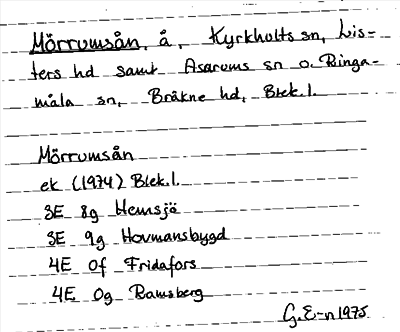 Mörrumsån, å, Kyrkhults sn, Lis-
ters hd samt Asarums sn o. Ringa-
måla sn, Bräkne hd, Blek.l.
Mörrumsån
ek (1974) Blek.l.
3E 8g Hemsjö
3E 9g Hovmansbygd
4E 0f Fridafors
4E 0g Ramsberg
G.E-n 1975